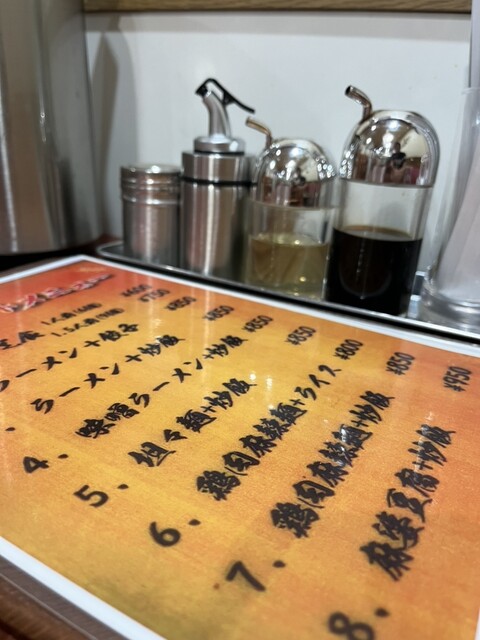 豆腐 1人前 ¥600
1.5人前 ¥750
ラーメン+餃子 ¥850
ラーメン+炒飯 ¥850
4. 味噌ラーメン+炒飯 ¥850
5. 担々麺+炒飯 ¥850
6. 鶏肉麻辣麺+ライス ¥800
7. 鶏肉麻辣麺+炒飯 ¥850
8. 麻婆豆腐+炒飯 ¥950